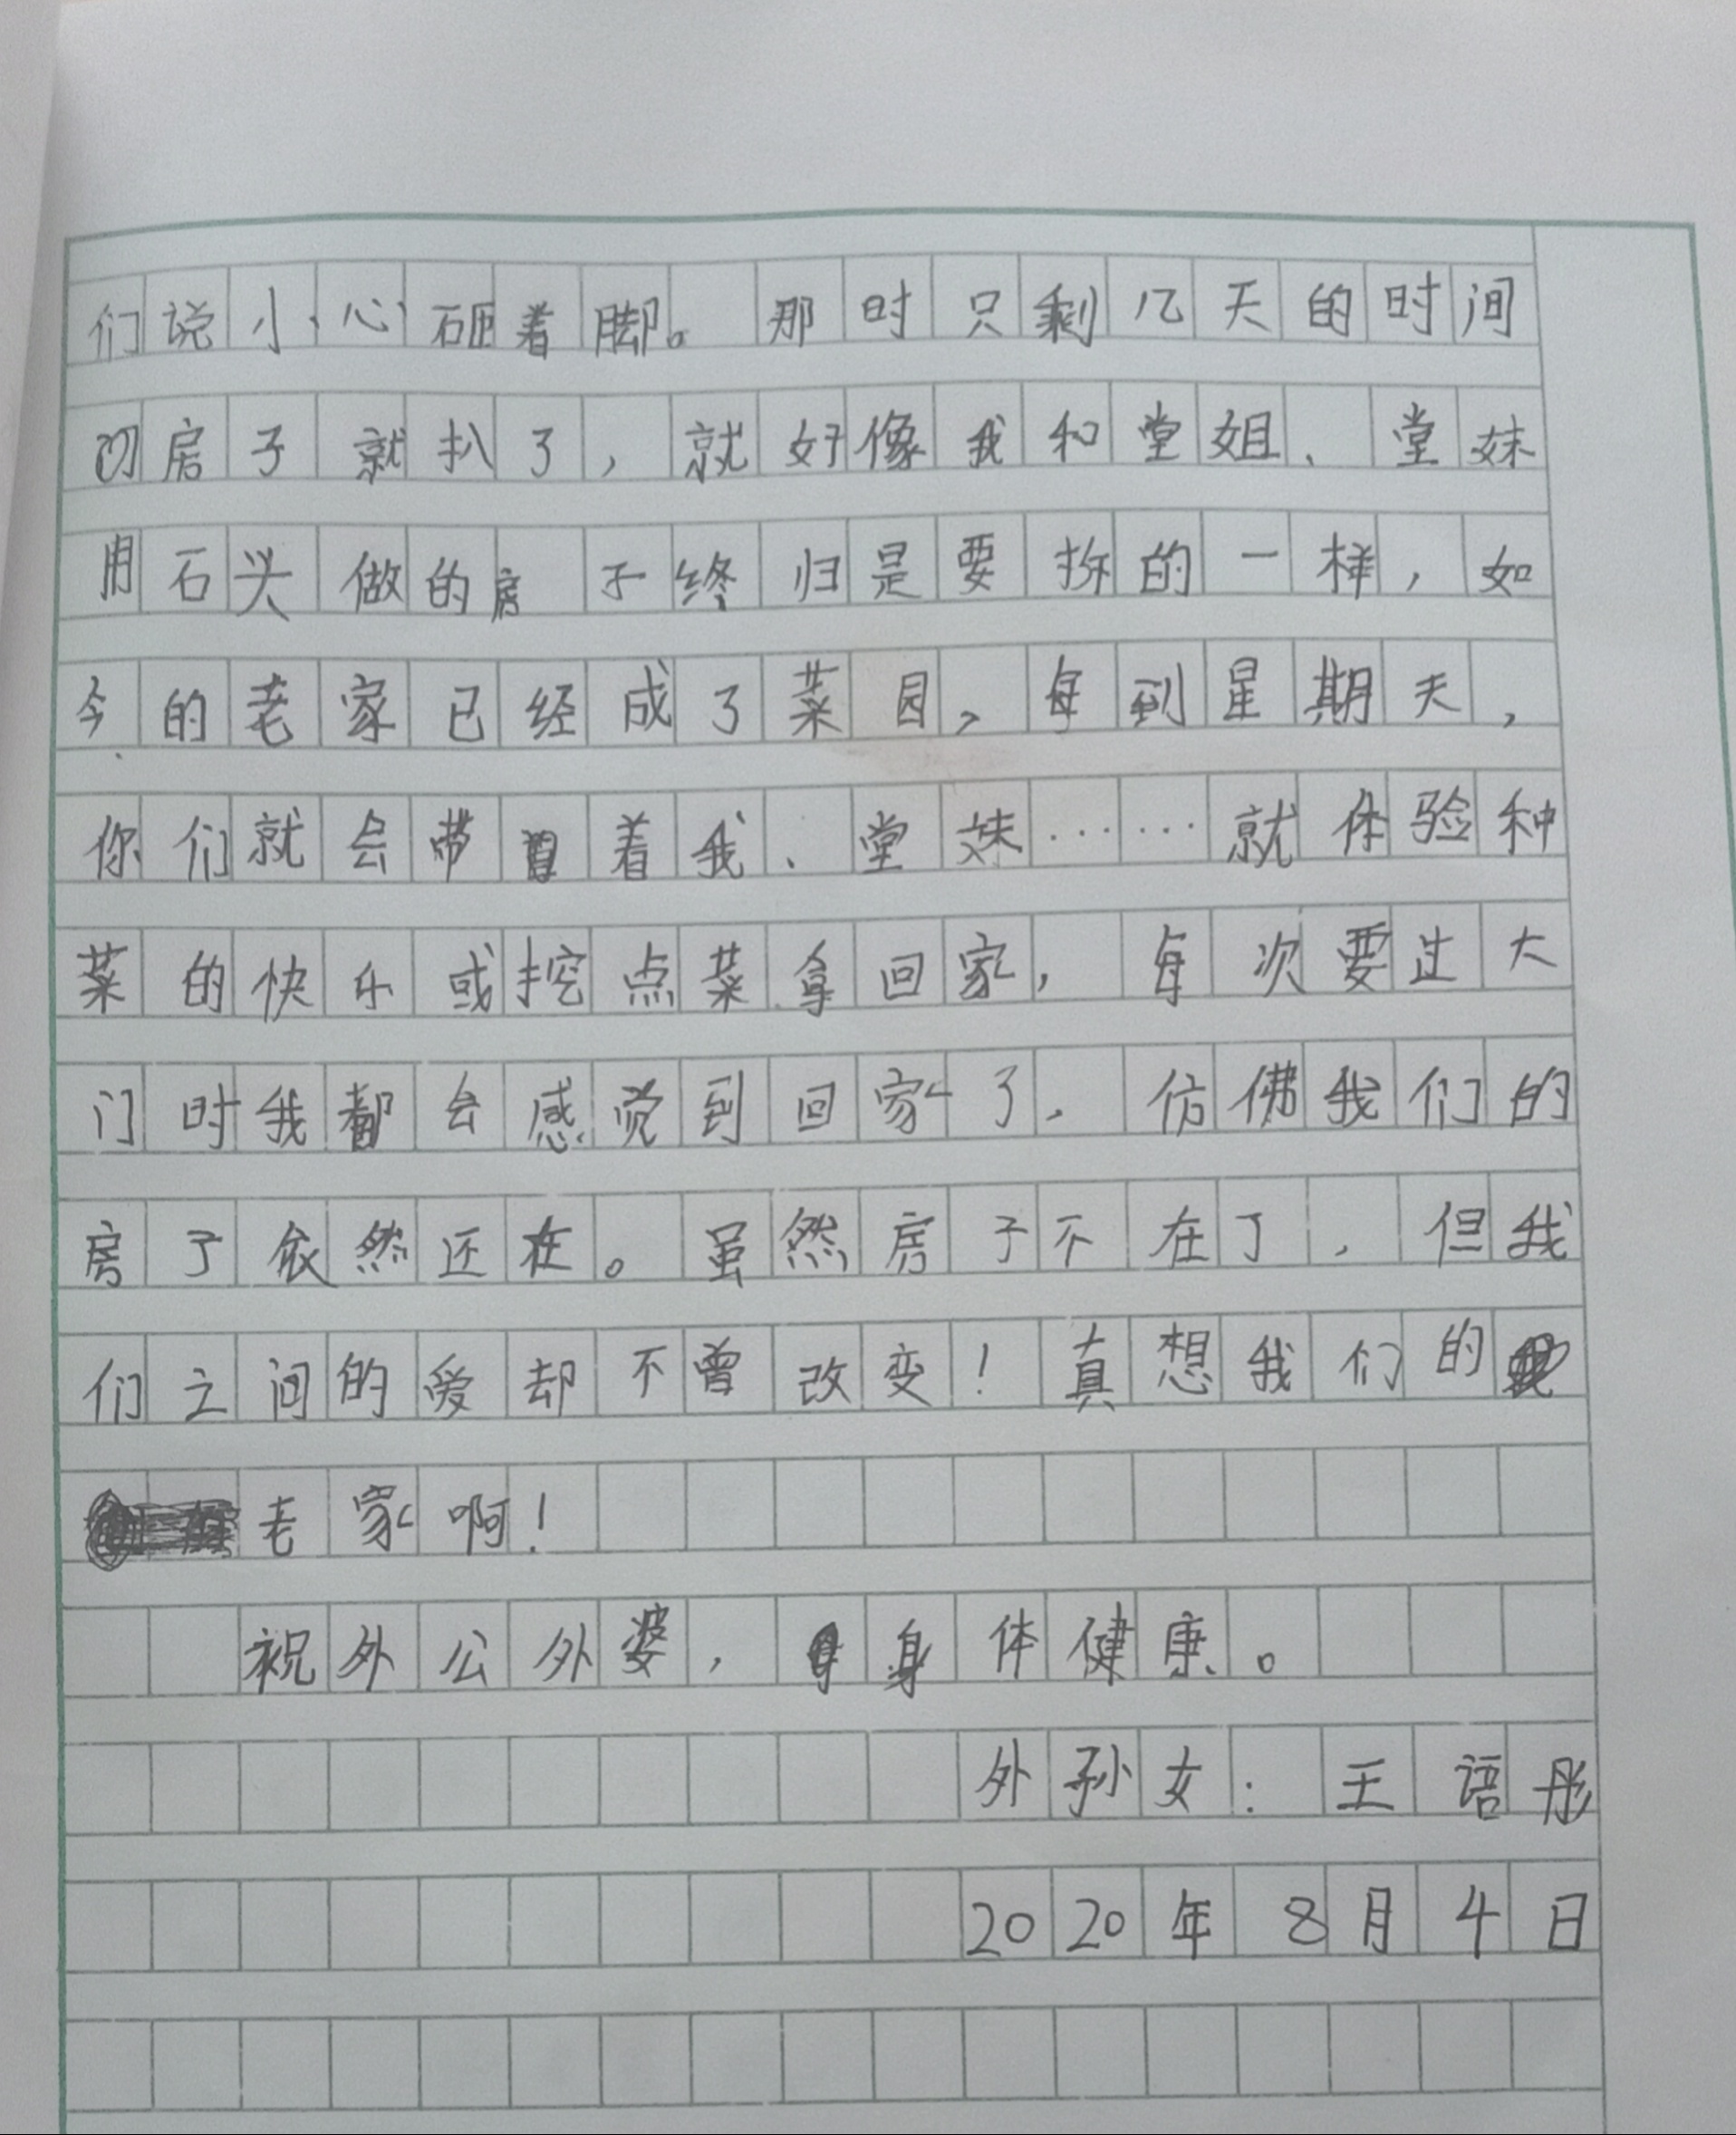 们说小心砸着脚。那时只剩几天的时间
房子就扒了，就好像我和堂姐、堂妹
用石头做的房子终归是要拆的一样，如
今的老家已经成了菜园，每到星期天，
你们就会带着我、堂妹……就体验种
菜的快乐或挖点菜拿回家，每次要进大
门时我都会感觉到回家了，仿佛我们的
房子依然还在。虽然房子不在了，但我
们之间的爱却不曾改变！真想我们的
老家啊！
祝外公外婆，身体健康。
外孙女：王语彤
2020年8月4日